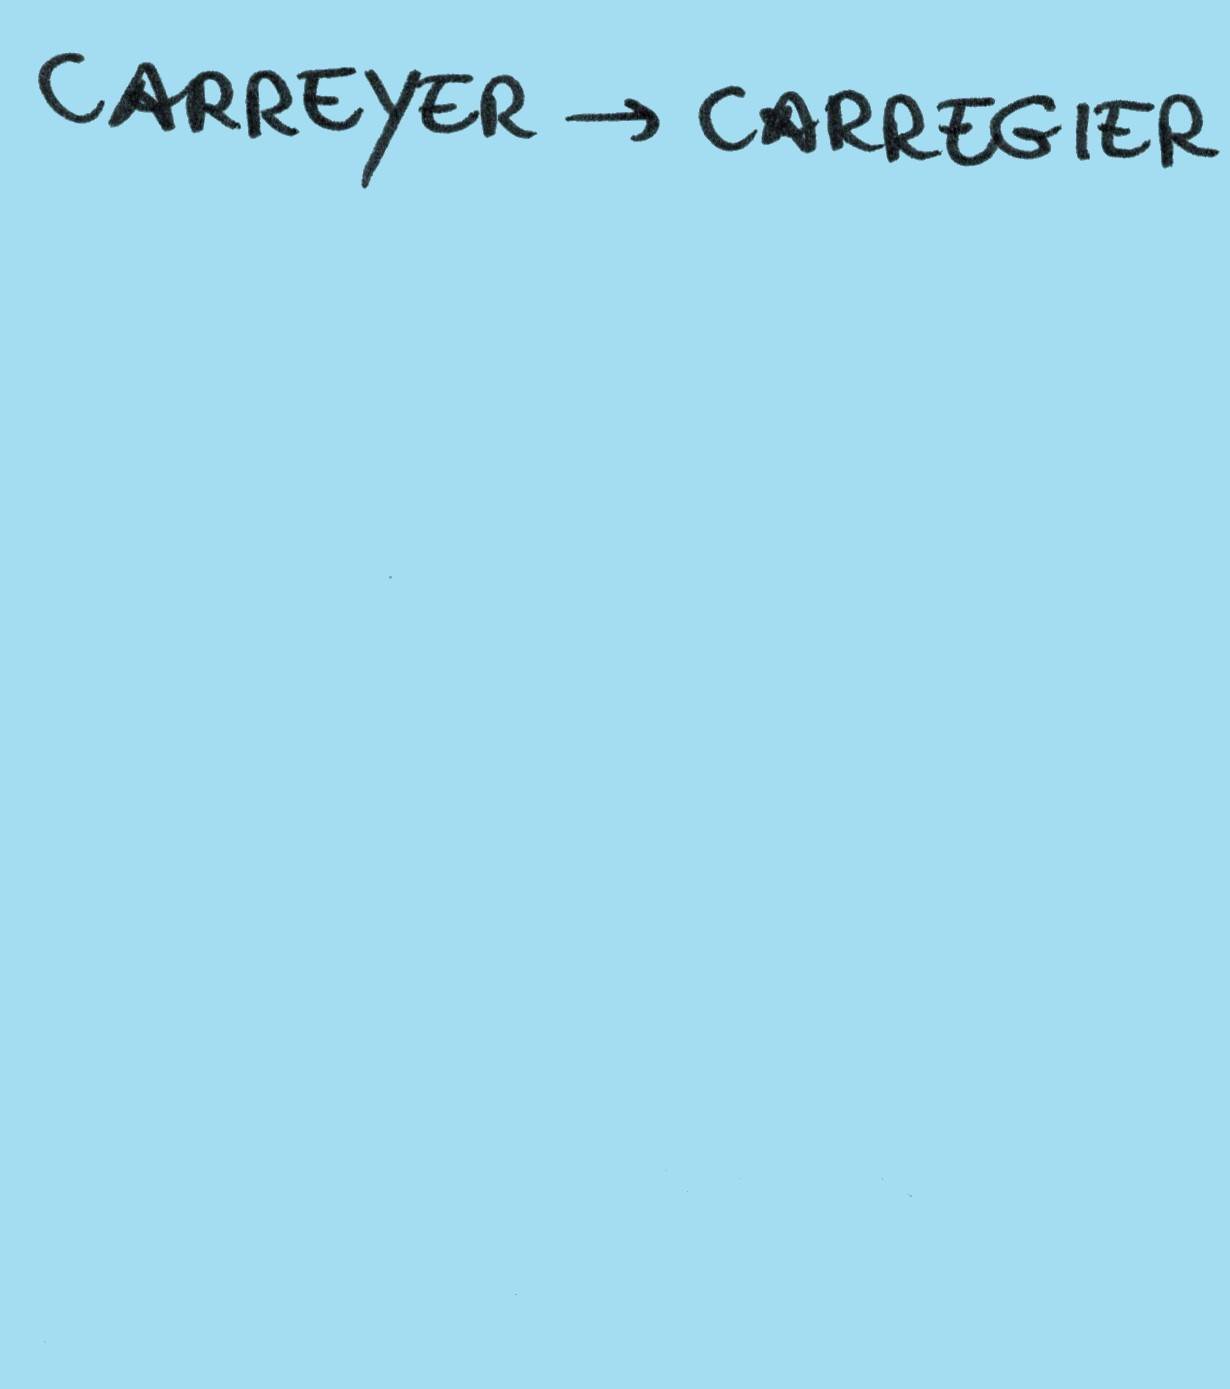 CARREYER → CARREGIER